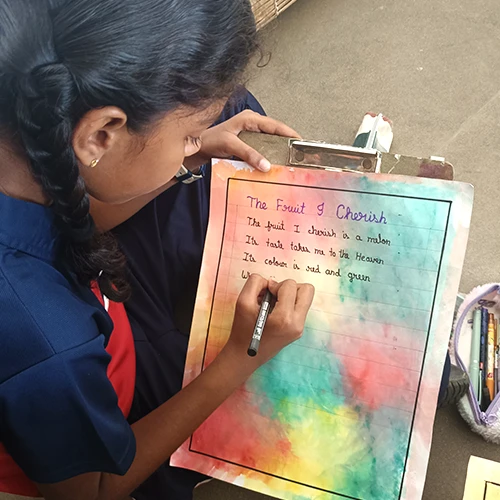 The Fruit I Cherish
The fruit I cherish is a melon
Its taste takes me to the Heaven
Its colour is red and green